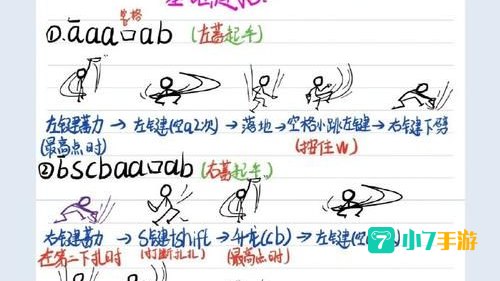 空格
①.āaa口ab (左蓄起手)
左键蓄力 → 左键(空a2次) → 落地 → 空格小跳左键 → 右键下劈
(最高点时) (按住W)
②b̄scbaa口ab (右蓄起手)
右键蓄力 → S键+shift → 升龙(cb) → 左键(空
在第二下扎时 (打断扎扎) (最高点时)
小7手游